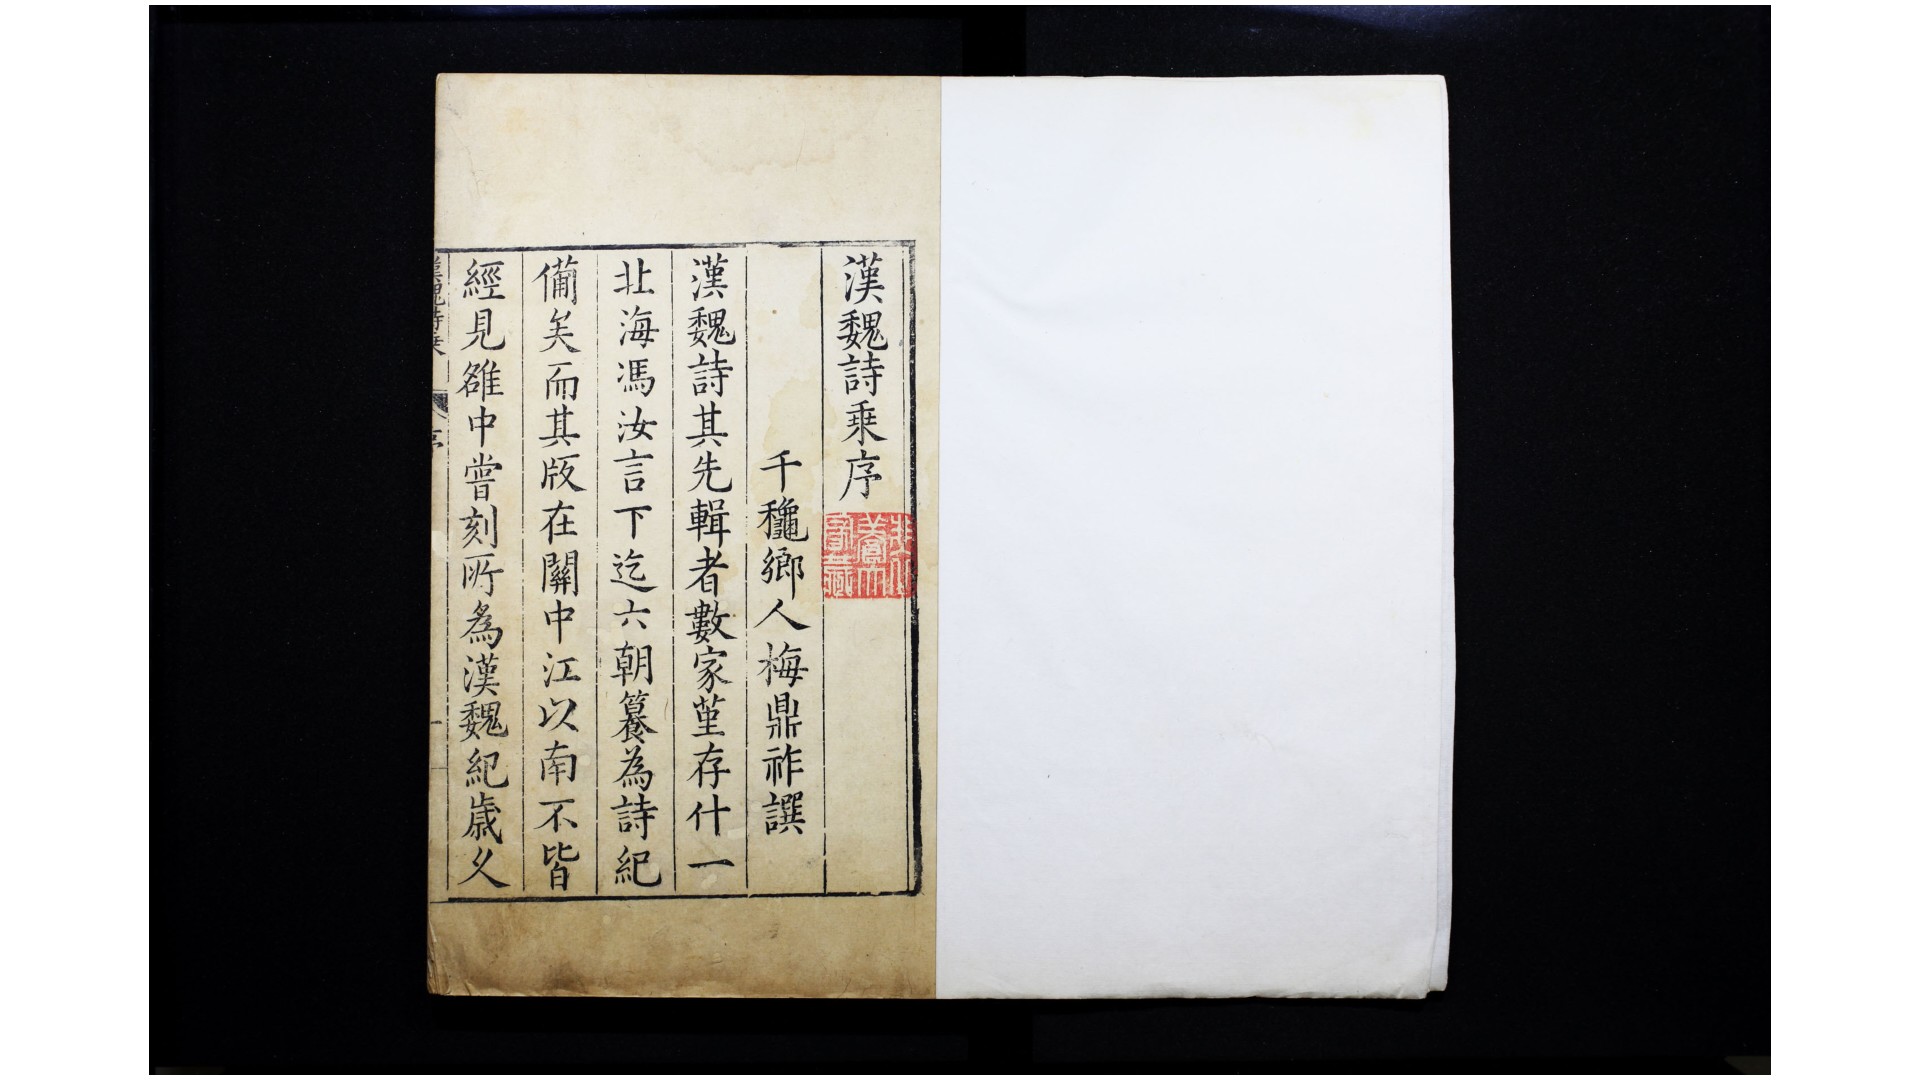 漢魏詩乗序
千龝鄉人梅鼎祚譔
漢魏詩其先輯者數家堇存什一
北海馮汝言下迄六朝纂為詩紀
備矣而其版在關中江以南不皆
經見雒中嘗刻所為漢魏紀歲久
漢魏詩乗
序
一